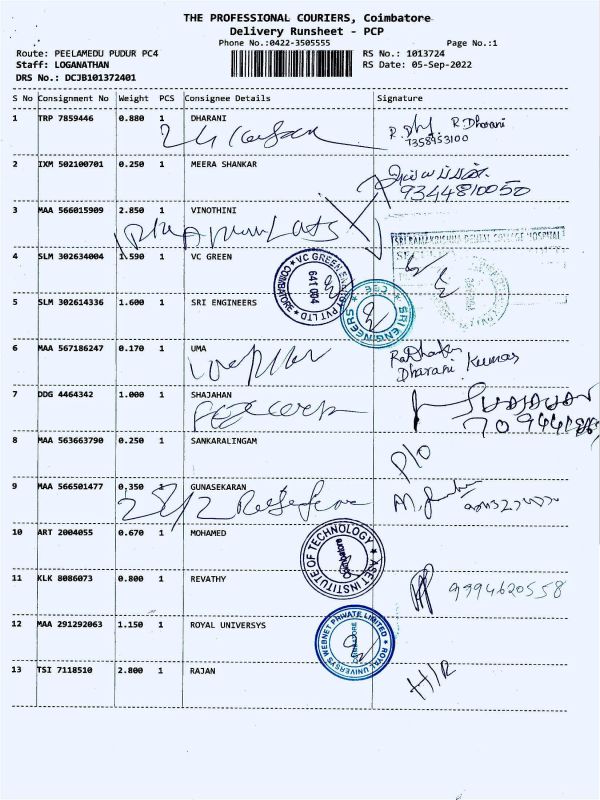 THE PROFESSIONAL COURIERS, Coimbatore
Delivery Runsheet - PCP
Phone No.:0422-3505555 Page No.:1
Route: PEELAMEDU PUDUR PC4 RS No.: 1013724
Staff: LOGANATHAN RS Date: 05-Sep-2022
DRS No.: DCJB101372401
S No Consignment No Weight PCS Consignee Details Signature
1 TRP 7859446 0.880 1 DHARANI R. Dharani
7358953100
2 IXM 502100701 0.250 1 MEERA SHANKAR
9344810050
3 MAA 566015909 2.850 1 VINOTHINI
SRI RAMAKRISHNA DENTAL COLLEGE HOSPITAL
4 SLM 302634004 1.590 1 VC GREEN
VC GREEN ENERGY PVT LTD COIMBATORE 641 004
5 SLM 302614336 1.600 1 SRI ENGINEERS
SRI ENGINEERS CBE
6 MAA 567186247 0.170 1 UMA
Dharani Kumar
7 DDG 4464342 1.000 1 SHAJAHAN
8 MAA 563663790 0.250 1 SANKARALINGAM P/O
9 MAA 566501477 0.350 1 GUNASEKARAN
10 ART 2004055 0.670 1 MOHAMED
ASET INSTITUTE OF TECHNOLOGY Coimbatore
11 KLK 8086073 0.800 1 REVATHY 9994620558
12 MAA 291292063 1.150 1 ROYAL UNIVERSYS
ROYAL UNIVERSYS WEBNET PRIVATE LIMITED COIMBATORE
13 TSI 7118510 2.800 1 RAJAN H/R